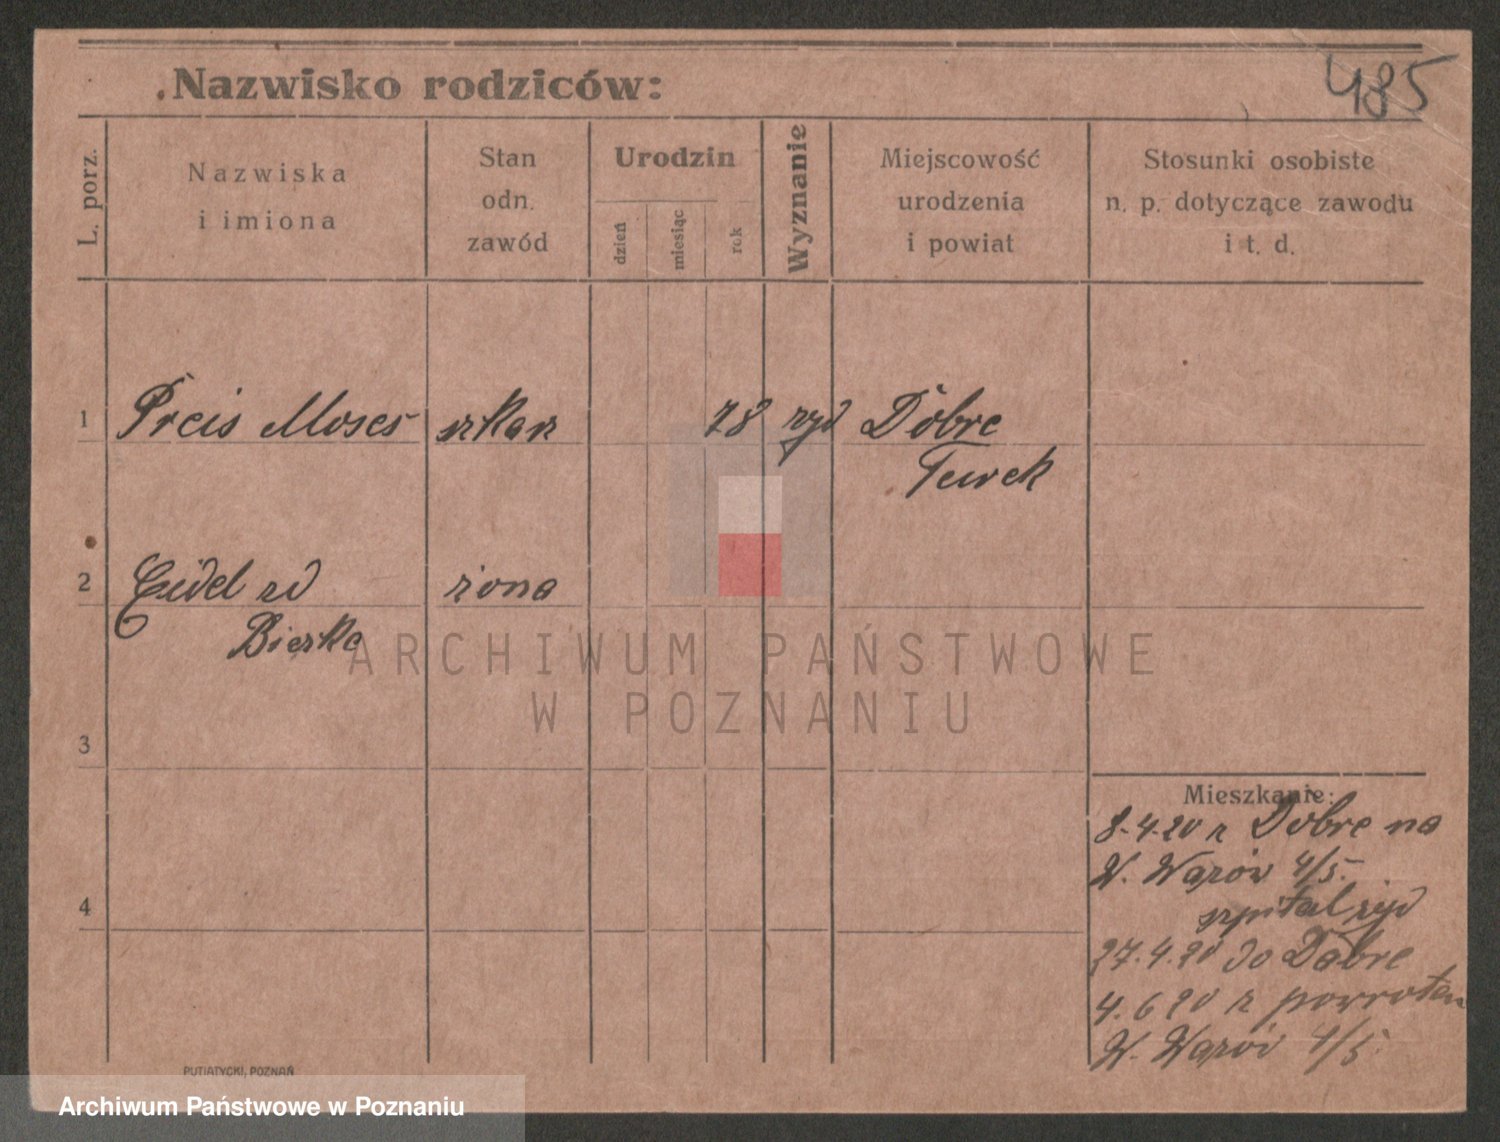 Nazwisko rodziców:
485
L. porz.
Nazwiska
i imiona
Stan
odn.
zawód
Urodzin
dzień
miesiąc
rok
Wyznanie
Miejscowość
urodzenia
i powiat
Stosunki osobiste
n. p. dotyczące zawodu
i t. d.
1
Preis Moses
78
żyd
Dobre
Turek
2
Eidel zd
żona
3
ARCHIWUM PAŃSTWOWE
W POZNANIU
Mieszkanie:
8.4.20 z Dobre na
W. 4/5.
szpital żyd
4
27.4.20 do Dobre
4.6 20 z powrotem
W. 4/5.
PUTIATYCKI, POZNAŃ
Archiwum Państwowe w Poznaniu